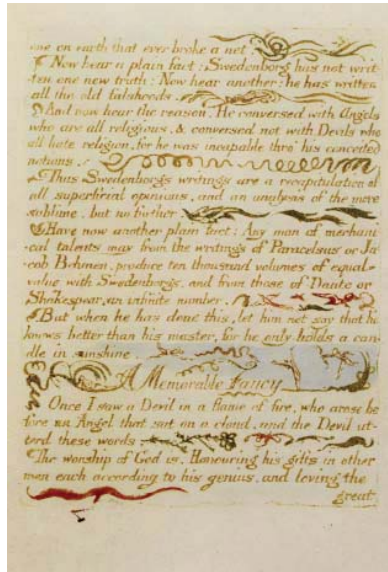 one on earth that ever broke a net.
Now hear a plain fact: Swedenborg has not writ-
-ten one new truth: Now hear another: he has written
all the old falshoods.
And now hear the reason. He conversed with Angels
who are all religious, & conversed not with Devils who
all hate religion, for he was incapable thro' his conceited
notions.
Thus Swedenborgs writings are a recapitulation of
all superficial opinions, and an analysis of the more
sublime, but no further.
Have now another plain fact: Any man of mechani-
-cal talents may from the writings of Paracelsus or Ja-
-cob Behmen, produce ten thousand volumes of equal
value with Swedenborg's, and from those of Dante or
Shakespear, an infinite number.
But when he has done this, let him not say that he
knows better than his master, for he only holds a can-
-dle in sunshine.
A Memorable Fancy
Once I saw a Devil in a flame of fire, who arose be-
-fore an Angel that sat on a cloud, and the Devil ut-
-terd these words
The worship of God is, Honouring his gifts in other
men each according to his genius, and loving the
great